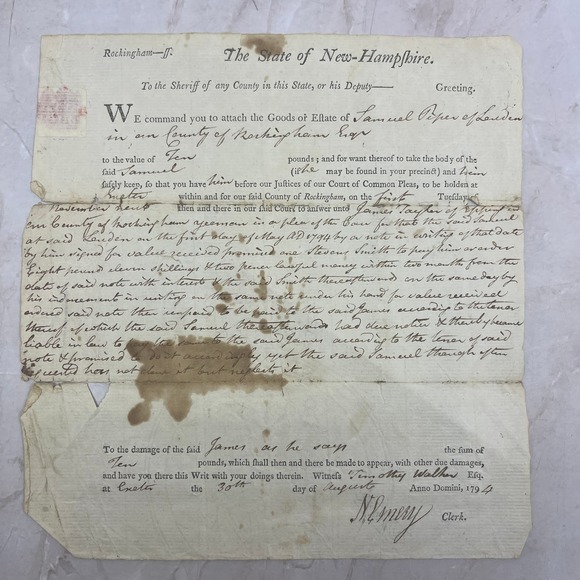 Rockingham—ſſ. The State of New-Hampſhire.
To the Sheriff of any County in this State, or his Deputy— Greeting.
WE command you to attach the Goods or Eſtate of Samuel Piper of Loudon
in our County of Rockingham Esqr
to the value of Ten pounds; and for want thereof to take the body of the
ſaid Samuel (if he may be found in your precinct) and him
ſafely keep, ſo that you have him before our Juſtices of our Court of Common Pleas, to be holden at
Exeter within and for our ſaid County of Rockingham, on the first Tueſday
November next then and there in our ſaid Court to anſwer unto James Taylor of Epping in
our County of Rockingham yeoman in a plea of the Case for that the said Samuel
at said Loudon on the first day of May AD 1794 by a note in writing of that date
by him signed for value received promised one Stevens Smith to pay him or order
Eight pound eleven shillings & two pence lawful money within two month from the
date of said note with interest & the said Smith thereafterwards on the same day by
his indorsement in writing on the same note under his hand for value received
ordered said note then unpaid to be paid to the said James according to the tenor
thereof of which the said Samuel there afterwards had due notice & thereby became
liable in law to pay the same to the said James according to the tenor of said
note & promised to do it accordingly yet the said Samuel though often
requested has not done it but neglects it
To the damage of the ſaid James as he says the ſum of
Ten pounds, which ſhall then and there be made to appear, with other due damages,
and have you there this Writ with your doings therein. Witneſs Timothy Walker Eſq.
at Exeter the 30th day of August Anno Domini, 1794
N Emery Clerk.